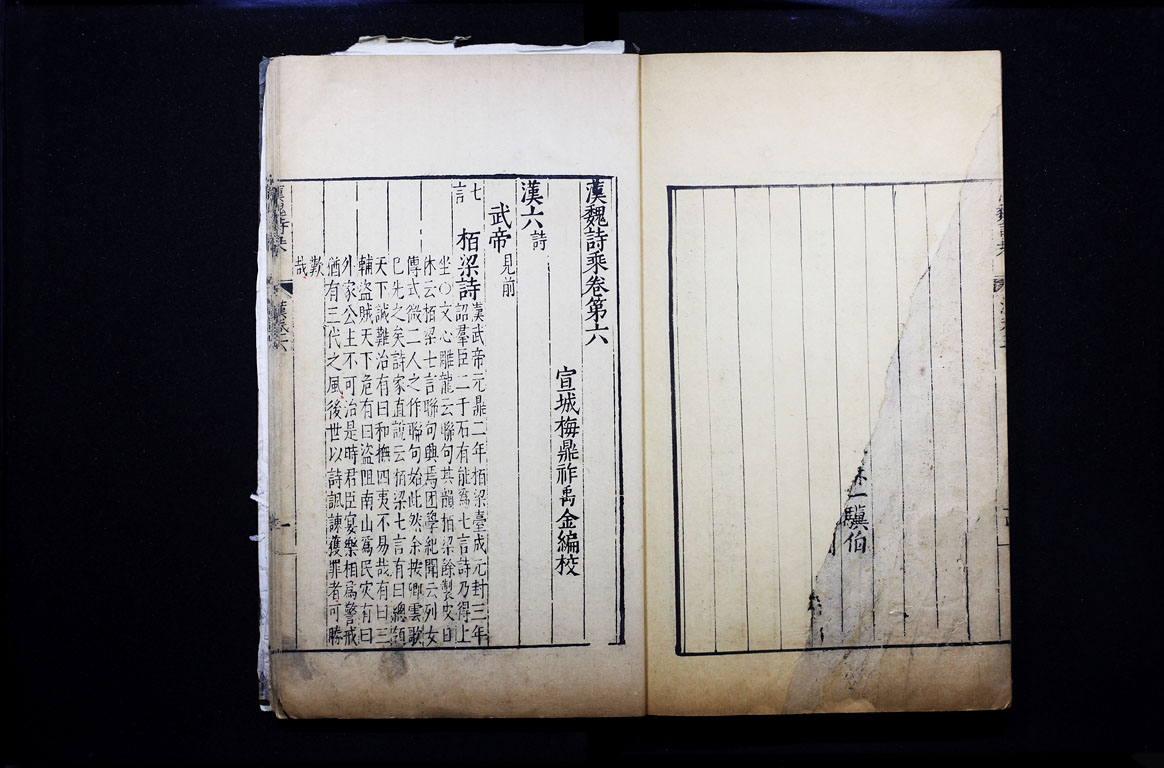 一驥伯
漢魏詩乘卷第六
宣城梅鼎祚禹金編校
漢六詩
武帝見前
七言
栢梁詩漢武帝元鼎二年栢梁臺成元封三年
詔羣臣二千石有能爲七言詩乃得上
坐○文心雕龍云聯句其韻栢梁餘製皮日
休云栢梁七言聯句興焉困學紀聞云列女
傳式微二人之作聯句始此然余按卿雲歌
已先之矣詩家直說云栢梁七言有曰總領
天下誠難治有曰和撫四夷不易哉有曰三
輔盜賊天下危有曰盜阻南山爲民灾有曰
外家公主不可治是時君臣宴樂相爲警戒
猶有三代之風後世以詩諷諫獲罪者可勝
歎
哉
漢魏詩乘
漢卷六
一